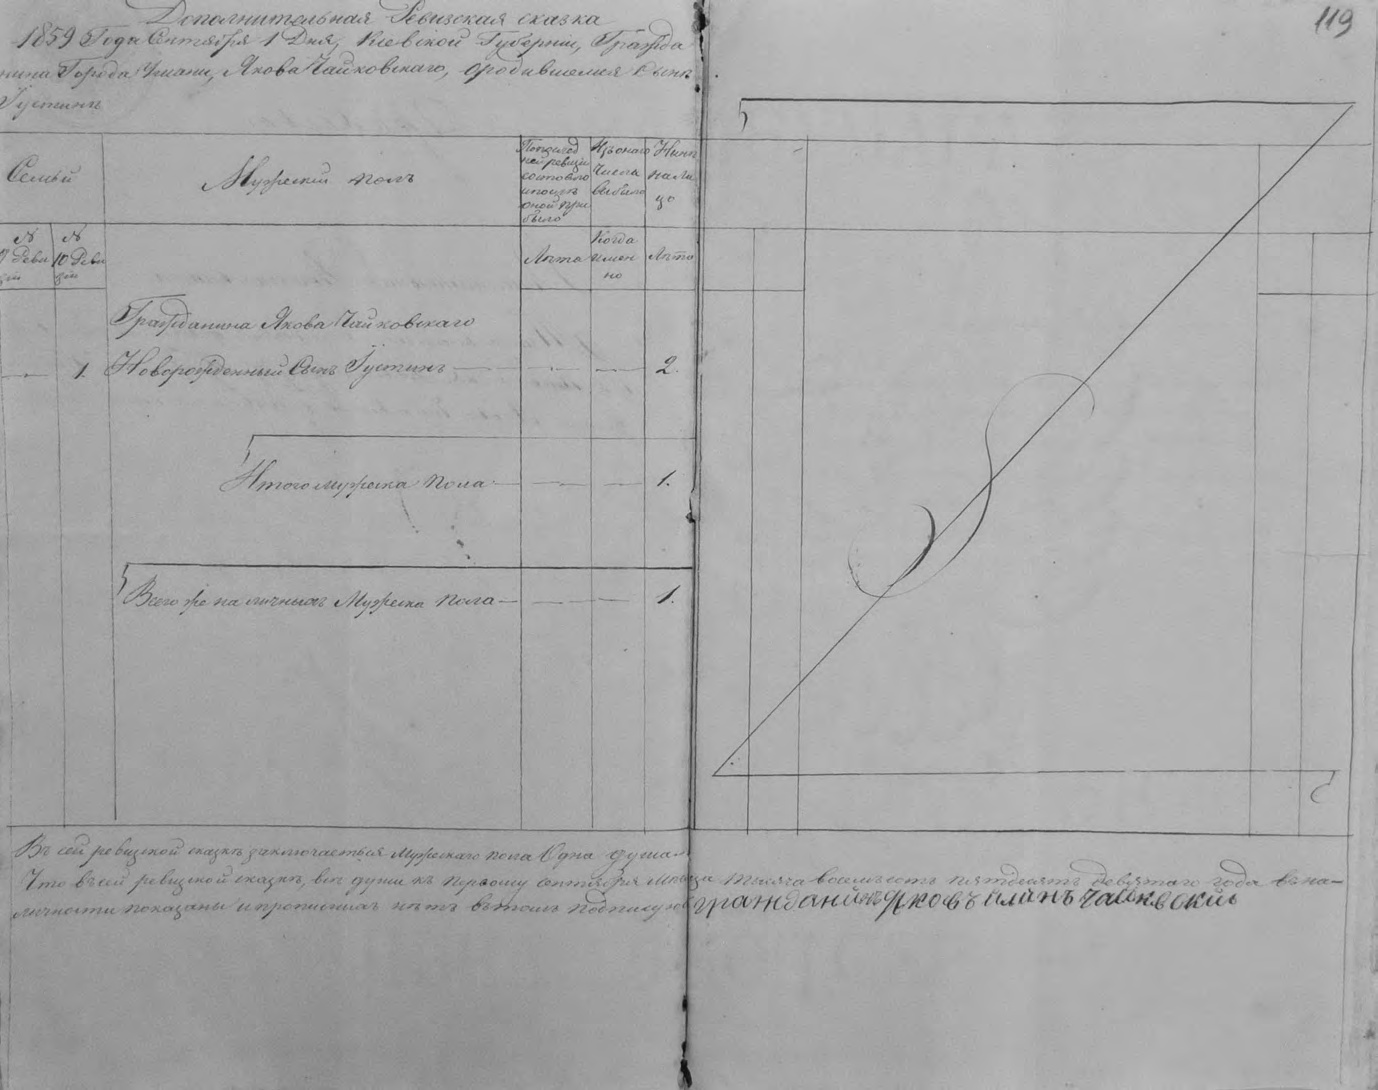 119
Дополнительная Ревизская сказка
1859 Года Сентября 1 Дня, Кіевской Губерніи, Гражда
нина Города Умани, Якова Чайковскаго, о родившемся Сынѣ
Іустинѣ
Семьи
Мужескій полъ
По послѣд
ней ревизіи
состояло
и послѣ
оной при
было
Изъ онаго
Числа
выбыло
Нынѣ
на ли
цо
№
Реви
зіи
№
10 Реви
зіи
Лѣта
Когда
имен
но
Лѣта
Гражданина Якова Чайковскаго
1. Новорожденный Сынъ Іустинъ — — — 2.
Итого мужеска пола — — — 1.
Всего же на личныхъ Мужеска пола — — — 1.
Въ сей ревизской сказкѣ заключается Мужескаго пола Одна душа
Что въ сей ревизской сказкѣ, всѣ души къ первому сентября мѣсяца тысяча восемьсотъ пятдесятъ девятаго года въ на-
личности показаны и прописныхъ нѣтъ въ томъ подписуюсь гражданинъ Яковъ Чайковскій